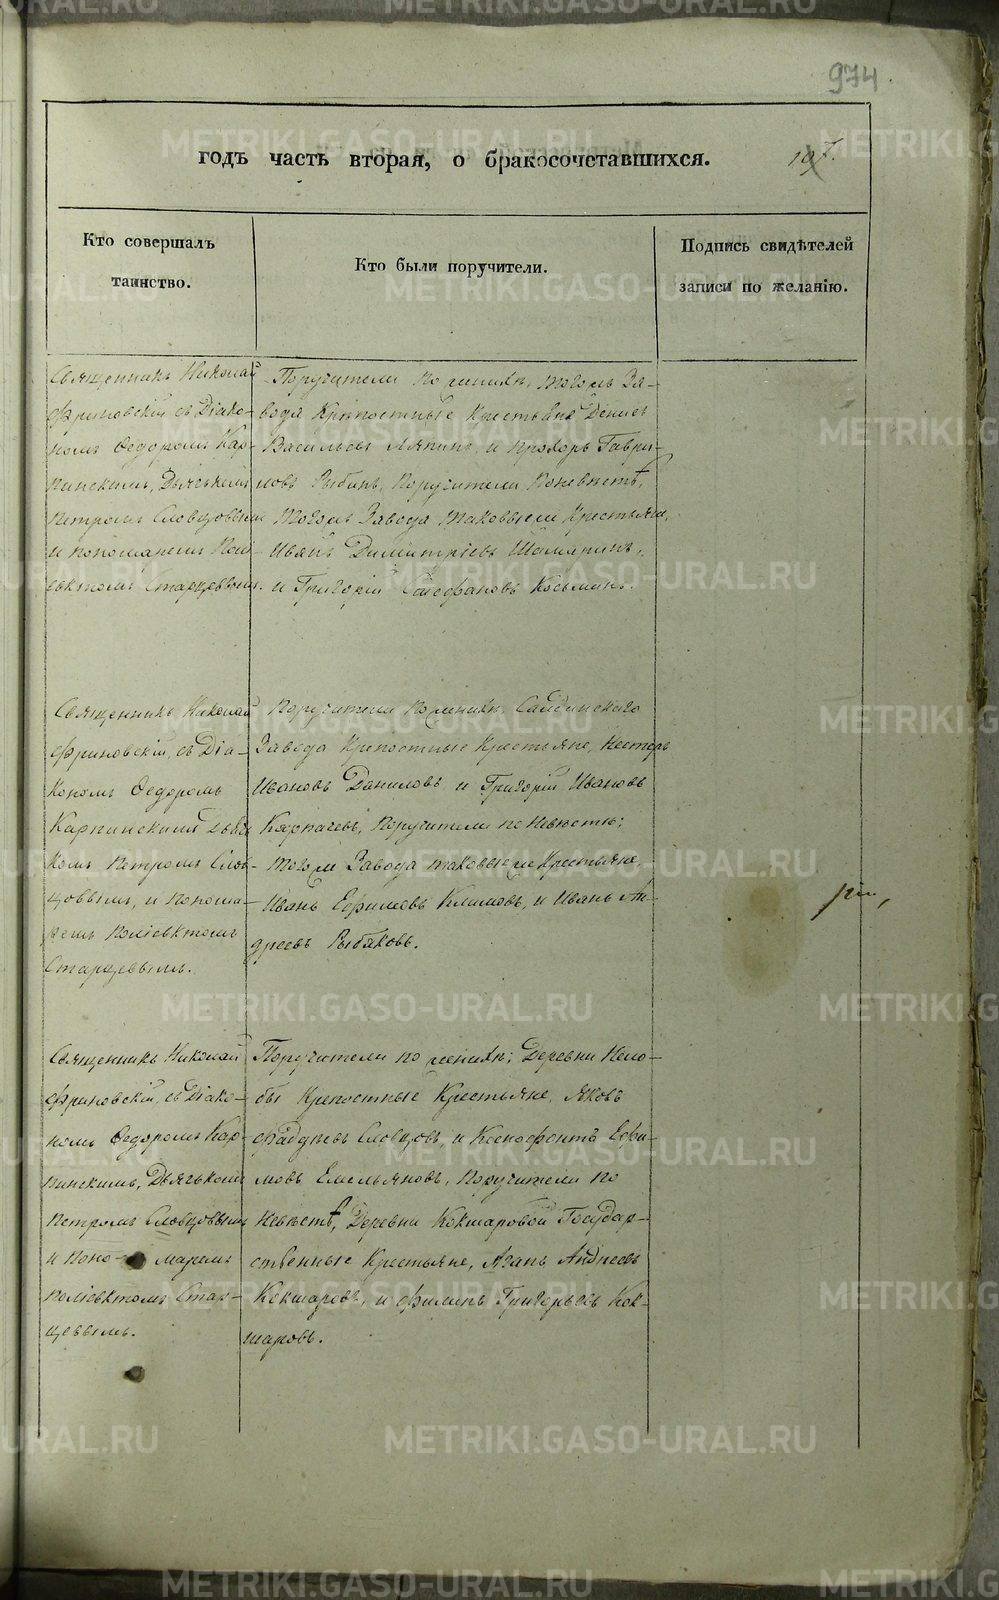 974
годъ часть вторая, о бракосочетавшихся.
107.
Кто совершалъ
таинство.
Кто были поручители.
Подпись свидѣтелей
записи по желанію.
Священникъ Николай
Фриновскій съ Діако-
номъ Ѳедоромъ Кар-
пинскимъ, Дьячкомъ
Петромъ Словцовымъ
и пономаремъ Полі-
евктомъ Старцевымъ.
Поручители по женихѣ, тогожъ За-
вода Крѣпостные Крестьяне Денисъ
Васильевъ Ляпинъ, и Прохоръ Гаври-
ловъ Рыбинъ, Поручители по невѣстѣ,
тогожъ Завода таковыеже Крестьяне,
Иванъ Димитріевъ
и Григорій Стефановъ Косьминъ.
Священникъ Николай
Фриновскій, съ Діа-
кономъ Ѳедоромъ
Карпинскимъ Дьяч
комъ Петромъ Слов-
цовымъ, и понома-
ремъ Поліевктомъ
Старцевымъ.
Поручители по женихѣ, Салдинскаго
Завода Крепостные Крестьяне, Несторъ
Ивановъ Даниловъ и Григорій Ивановъ
Карпачевъ, Поручители по невѣстѣ;
тогоже Завода таковыеже Крестьяне,
Иванъ Ефимовъ Климовъ, и Иванъ Ан-
дреевъ Рыбаковъ.
Священникъ Николай
Фриновскій, съ Діако-
номъ Ѳедоромъ Кар-
пинскимъ, Дьячькомъ
Петромъ Словцовымъ
и поно- маремъ
Поліевктомъ Стар-
цевымъ.
Поручители по женихѣ; Деревни Нело-
бы Крепостные Крестьяне, Яковъ
Фадѣевъ Словцовъ, и Ксенофонтъ Ефи-
мовъ Емельяновъ, Поручители по
Невѣстѣ, Деревни Кокшаровой Государ-
ственные Крестьяне, Агапъ Андреевъ
Кокшаровъ, и Филипъ Григорьевъ Кок-
шаровъ.
METRIKI.GASO-URAL.RU